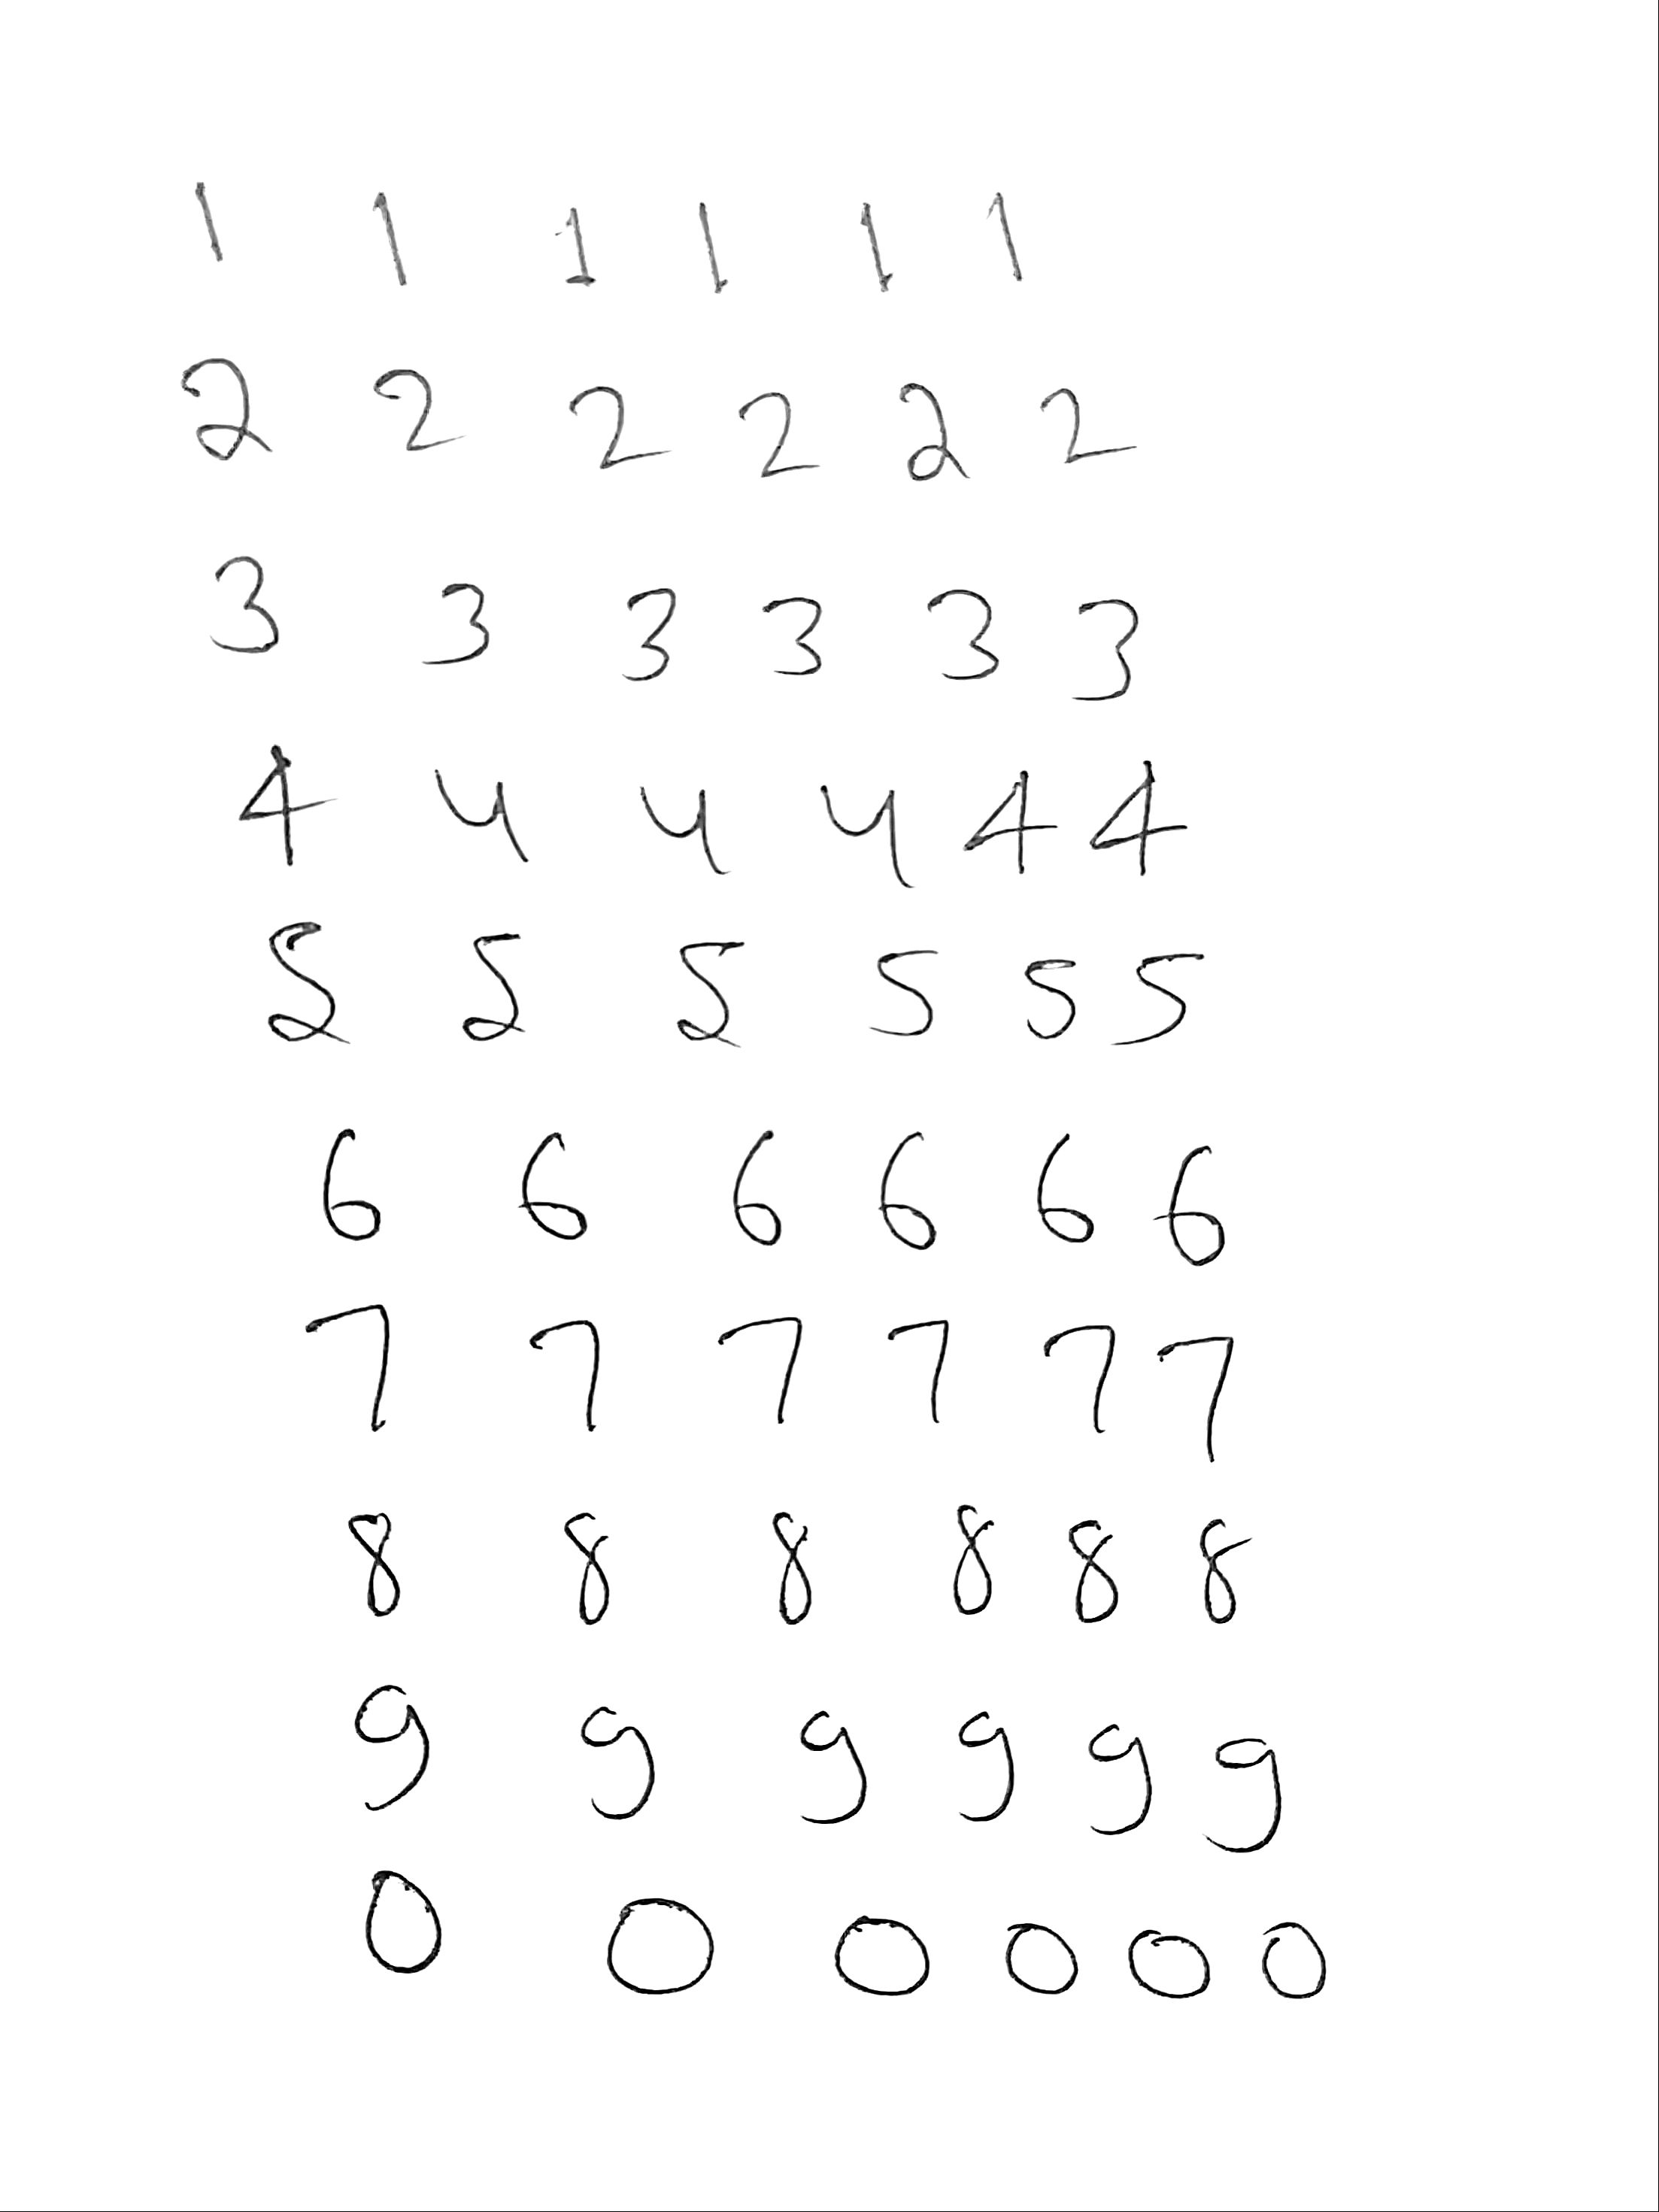 1 1 1 1 1 1
2 2 2 2 2 2
3 3 3 3 3 3
4 4 4 4 4 4
5 5 5 5 5 5
6 6 6 6 6 6
7 7 7 7 7 7
8 8 8 8 8 8
9 9 9 9 9 9
0 0 0 0 0 0